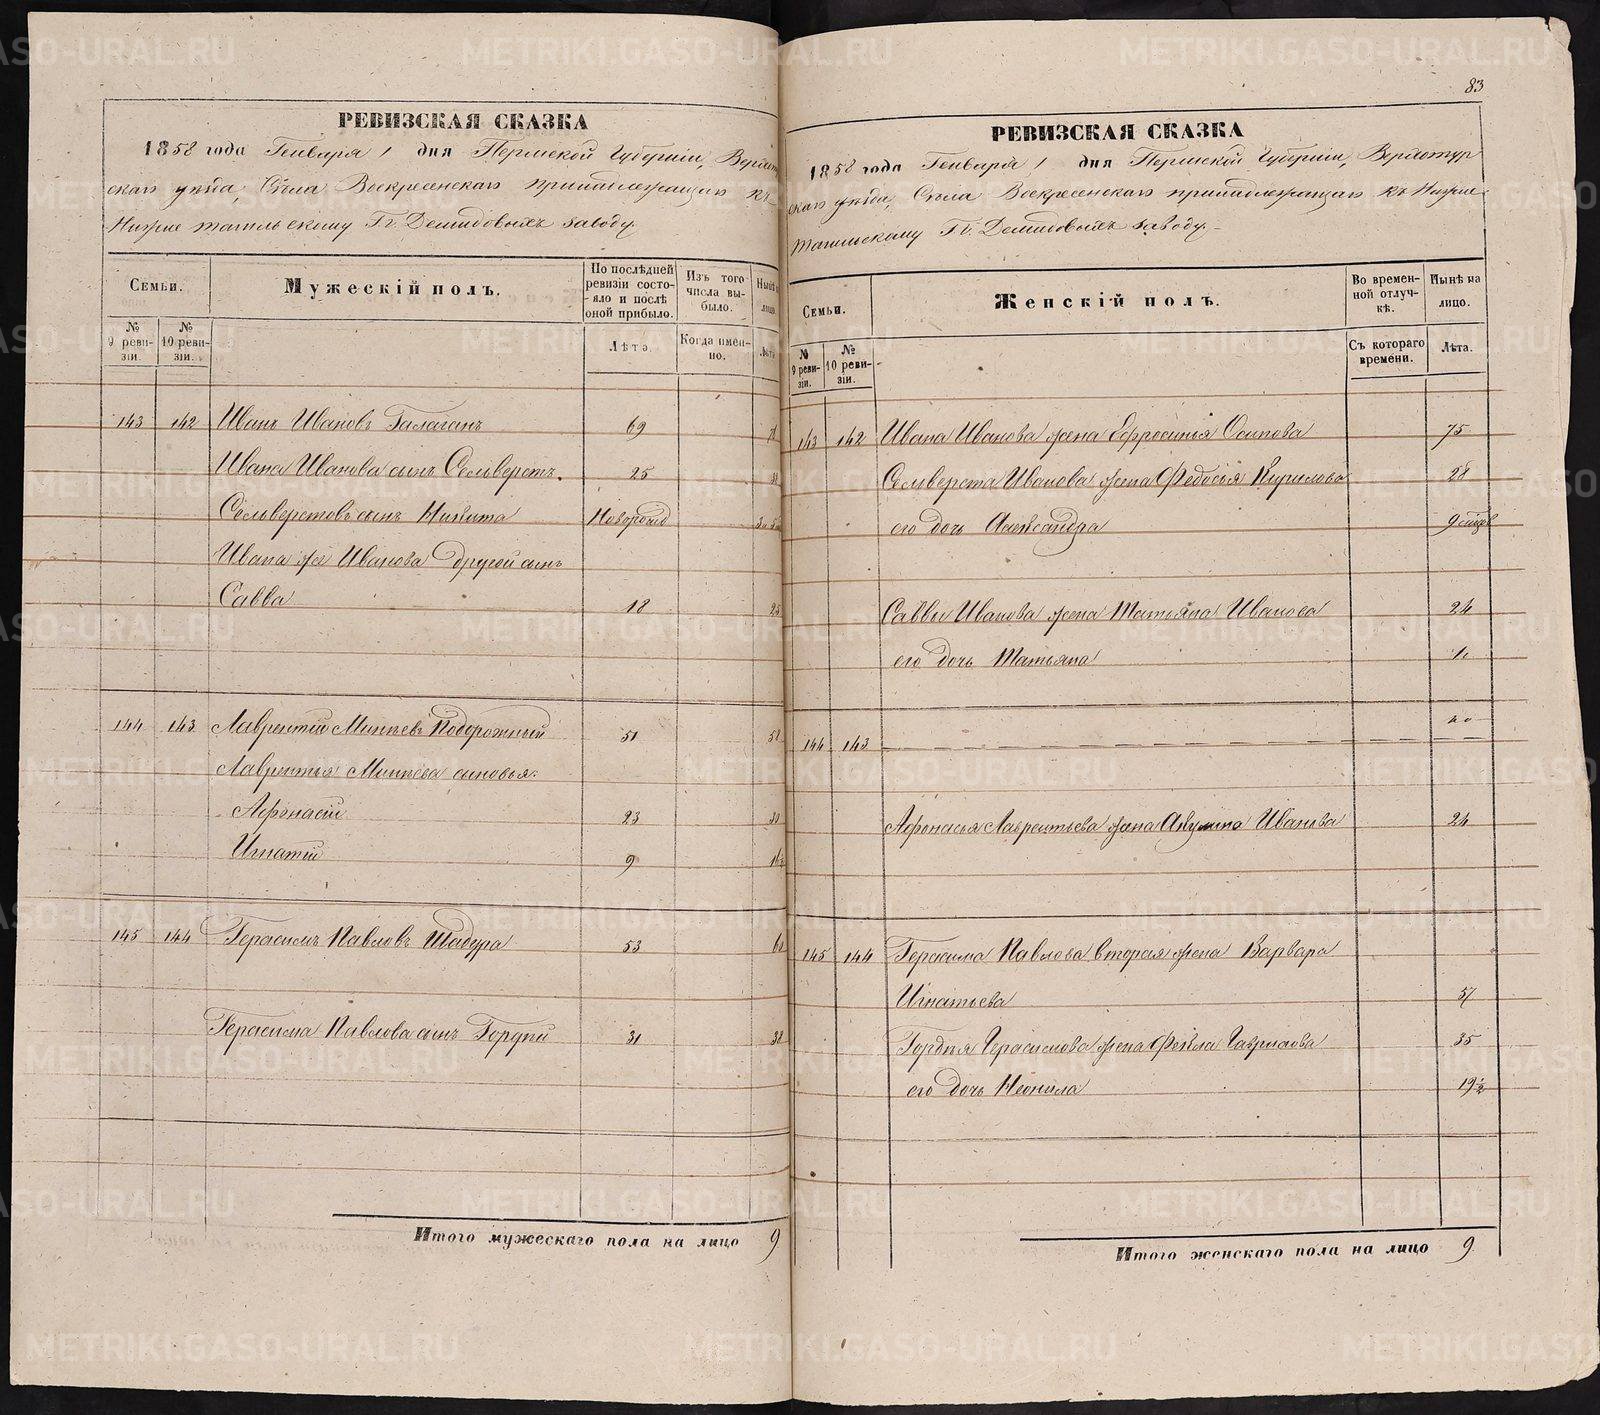 РЕВИЗСКАЯ СКАЗКА
1858 года Генваря 1 дня Пермской Губерніи, Верхотур
скаго уѣзда, Села Воскресенскаго принадлежащаго къ
Нижне тагильскому Гг. Демидовыхъ заводу
Семьи.
Мужескій полъ.
По послѣдней ревизіи состояло и послѣ оной прибыло.
Изъ того числа выбыло.
Нынѣ на лицо.
№ 9 ревизіи.
№ 10 ревизіи.
Лѣта.
Когда именно.
Лѣта
143 142 Иванъ Ивановъ Галаганъ 69
Ивана Иванова сынъ Сельверстъ. 25 32
Сельверстовъ сынъ Никита Новорожд
Ивана же Иванова другой сынъ
Савва 18 25
144 143 Лаврентій Минѣевъ Подорожный 51 58
Лаврентья Минѣева сыновья:
Афонасій 23 30
Игнатій 9 16
145 144 Герасимъ Павловъ Шадура 53 60
Герасима Павлова сынъ Гордѣй 31 38
Итого мужескаго пола на лицо 9
83
РЕВИЗСКАЯ СКАЗКА
1858 года Генваря 1 дня Пермской Губерніи, Верхотур
скаго уѣзда, Села Воскресенскаго принадлежащаго къ Нижне
тагильскому Гг. Демидовыхъ заводу.
Семьи.
Женскій полъ.
Во временной отлучкѣ.
Нынѣ на лицо.
№ 9 ревизіи.
№ 10 ревизіи.
Съ котораго времени.
Лѣта.
143 142 Ивана Иванова жена Ефросинія Осипова 75
Сельверста Иванова жена Федосья Кирилова 28
его дочь Александра
Саввы Иванова жена Татьяна Иванова 24
его дочь Татьяна
144 143
Афонасья Лаврентьева жена Акулина Иванова 24
145 144 Герасима Павлова вторая жена Варвара
Игнатьева 57
Гордѣя Герасимова жена Фекла Гаврилова 35
его дочь Неонила 19½
Итого женскаго пола на лицо 9.
METRIKI.GASO-URAL.RU